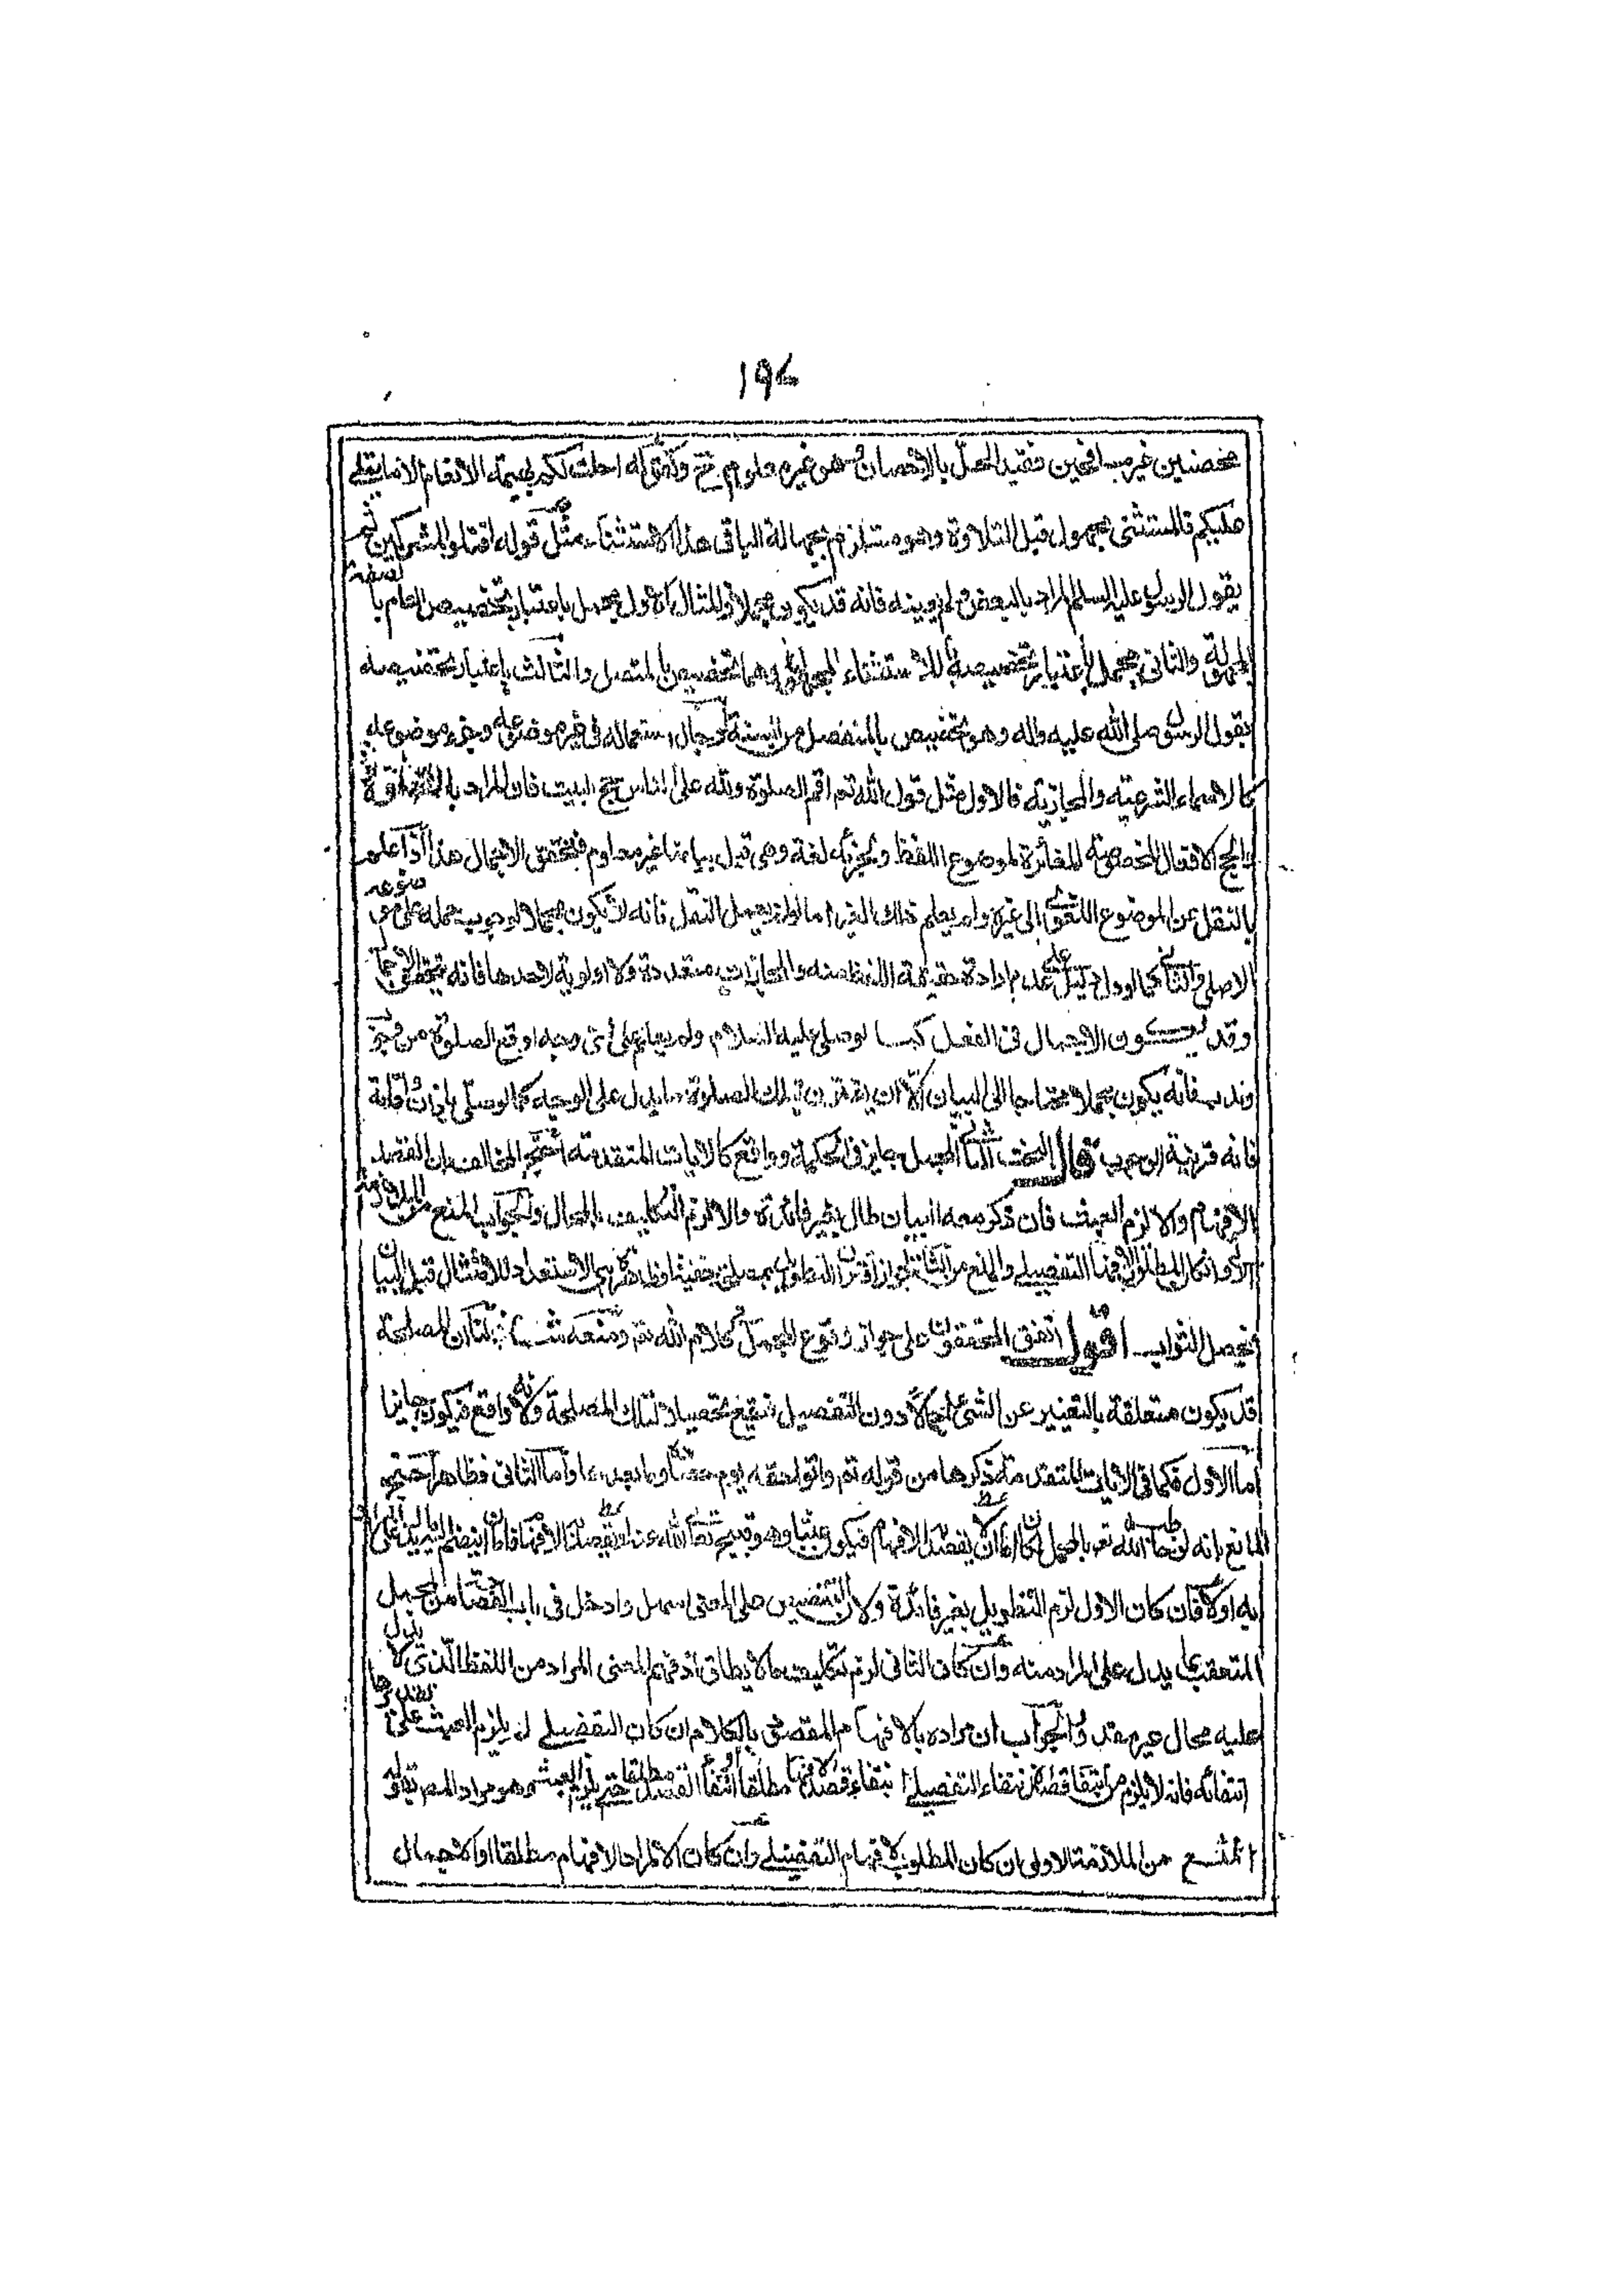 ١٩٤
محصنين غير مسافحين فقيد الحل بالاحصان وهو غير معلوم وكقوله احلت لكم بهيمة الانعام الا ما يتلى
عليكم فالمستثنى مجهول قبل التلاوة وهو مستلزم لجهالة الباقى هذا الاستثناء مثل قوله اقتلوا المشركين ثم
يقول الرسول عليه السلم المراد بالبعض ولم يبينه فانه قد يكون مجملا فالمثال الاول مجمل باعتبار تخصيص العام بالصفة
المجهولة والثانى مجمل باعتبار تخصيصه للاستثناء المجهول وهما تخصيص بالمتصل والثالث باعتبار تخصيصه
بقول الرسول صلى الله عليه واله وهو تخصيص بالمنفصل من السنة حال استعماله فى غير موضوعه وجزء موضوعه
كالاسماء الشرعية والمجازية فالاول مثل قول الله تع اقم الصلوة ولله على الناس حج البيت فان المراد بالصلوة
والحج الافعال المخصوصة المغائرة لموضوع اللفظ لغة وهى قبل بيانها غير معلوم فيتحقق الاجمال هذا اذا علم
بالنقل عن الموضوع اللغوى الى غيره ولم يعلم ذلك الغير اما لو لم يعلم النقل فانه لا يكون مجملا لوجوب حمله على موضوعه
الاصلى والثانى كما لو دل دليل على عدم ارادة حقيقة اللفظ منه والمجازات متعددة ولا اولوية لاحدها فانه يتحقق الاجمال
وقد يكون الاجمال فى الفعل كما لو صلى عليه السلام ولم يعلم على اى وجه اوقع الصلوة من وجوب
وندب فانه يكون مجملا محتاجا الى البيان الا ان يقترن بتلك الصلوة ما يدل على الوجه كما لو صلى باذان واقامة
فانه قرينة الوجوب قال البحث الثانى المجمل جايز فى الحكمة وواقع كالايات المتقدمة احتج المخالف بان القصد
الافهام والا لزم العبث فان ذكر معه البيان طال بغير فائدة والا لزم التكليف بالمحال والجواب المنع من الملازمة
الاولى وانما المطلوب الافهام التفصيلى والمنع من الثانية لجواز اقتران التطويل بمصلحة خفية او ظاهرة هى الاستعداد للامتثال قبل البيان
فيحصل الثواب اقول اتفق المحققون على جواز وقوع المجمل فى كلام الله تع ومنعه شاذ لنا ان المصلحة
قد يكون متعلقة بالتعبير عن الشئ اجمالا دون التفصيل فيقع تحصيلا لتلك المصلحة ولانه واقع فيكون جايزا
اما الاول فكما فى الايات المتقدمة ذكرها من قوله تع واتوا حقه يوم حصاده وما بعدها واما الثانى فظاهر احتج
المانع بانه لو خاطب الله تع بالمجمل لكان اما ان لا يقصد الافهام فيكون عبثا وهو قبيح تعالى الله عنه او يقصد الافهام فاما ان ينضم اليه
به اولا فان كان الاول لزم التطويل بغير فائدة ولان التنصيص على المعنى اسهل وادخل فى باب الفصاحة من المجمل
المتعقب بما يدل على المراد منه وان كان الثانى لزم تكليف ما لا يطاق اذ فهم المعنى المراد من اللفظ الذى لا يدل
عليه محال غير مقدور والجواب ان مراده بالافهام المقصود بالكلام ان كان التفصيلى لم يلزم العبث على تقدير
انتفائه فانه لا يلزم من انتفاء قصد التفصيلى انتفاء قصد الافهام مطلقا حتى يلزم العبث وهو مراد المص بقوله
المنع من الملازمة الاولى ان كان المطلوب الافهام التفصيلى وان كان المراد الافهام مطلقا او الاجمال